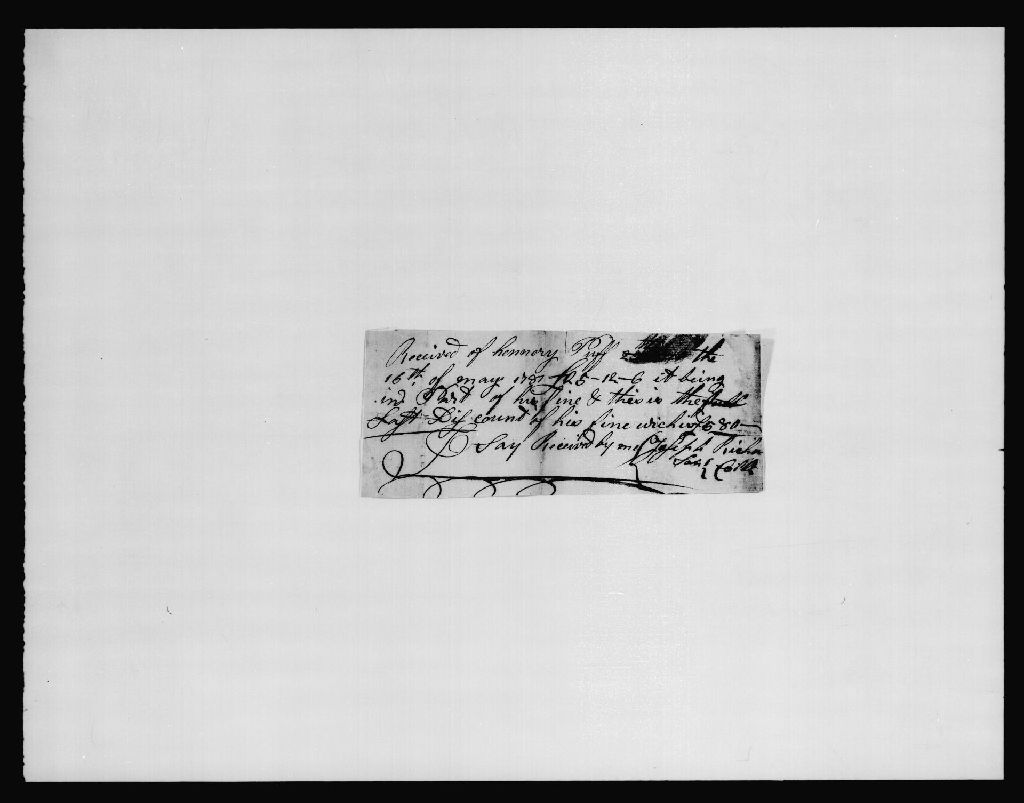 Received of hennory Puff the
16th. of may 1787 £ 5-12-6 it being
in Part of his fine & this is the
Last Discount of his fine wich is
Say Received by me Joseph Richa